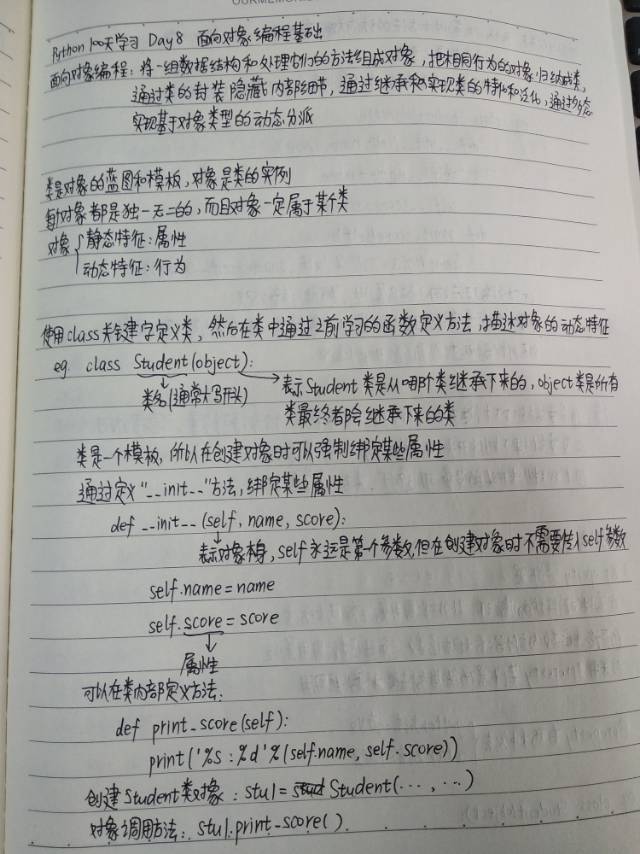 Python 100天学习 Day8 面向对象编程基础
面向对象编程：将一组数据结构和处理它们的方法组成对象，把相同行为的对象归纳成类，
通过类的封装隐藏内部细节，通过继承和实现类的特化和泛化，通过多态
实现基于对象类型的动态分派
类是对象的蓝图和模板，对象是类的实例
每个对象都是独一无二的，而且对象一定属于某个类
对象 静态特征：属性
动态特征：行为
使用class关键字定义类，然后在类中通过之前学习的函数定义方法，描述对象的动态特征
eg. class Student(object):
类名(通常大写开头) 表示Student类是从哪个类继承下来的，object类是所有
类最终都会继承下来的类
类是一个模板，所以在创建对象时可以强制绑定某些属性
通过定义"__init__"方法，绑定某些属性
def __init__(self, name, score):
表示对象本身，self永远是第一个参数，但在创建对象时不需要传入self参数
self.name = name
self.score = score
属性
可以在类内部定义方法：
def print_score(self):
print('%s : %d' % (self.name, self.score))
创建Student类对象：stu1 = Student(..., ...)
对象调用方法：stu1.print_score()